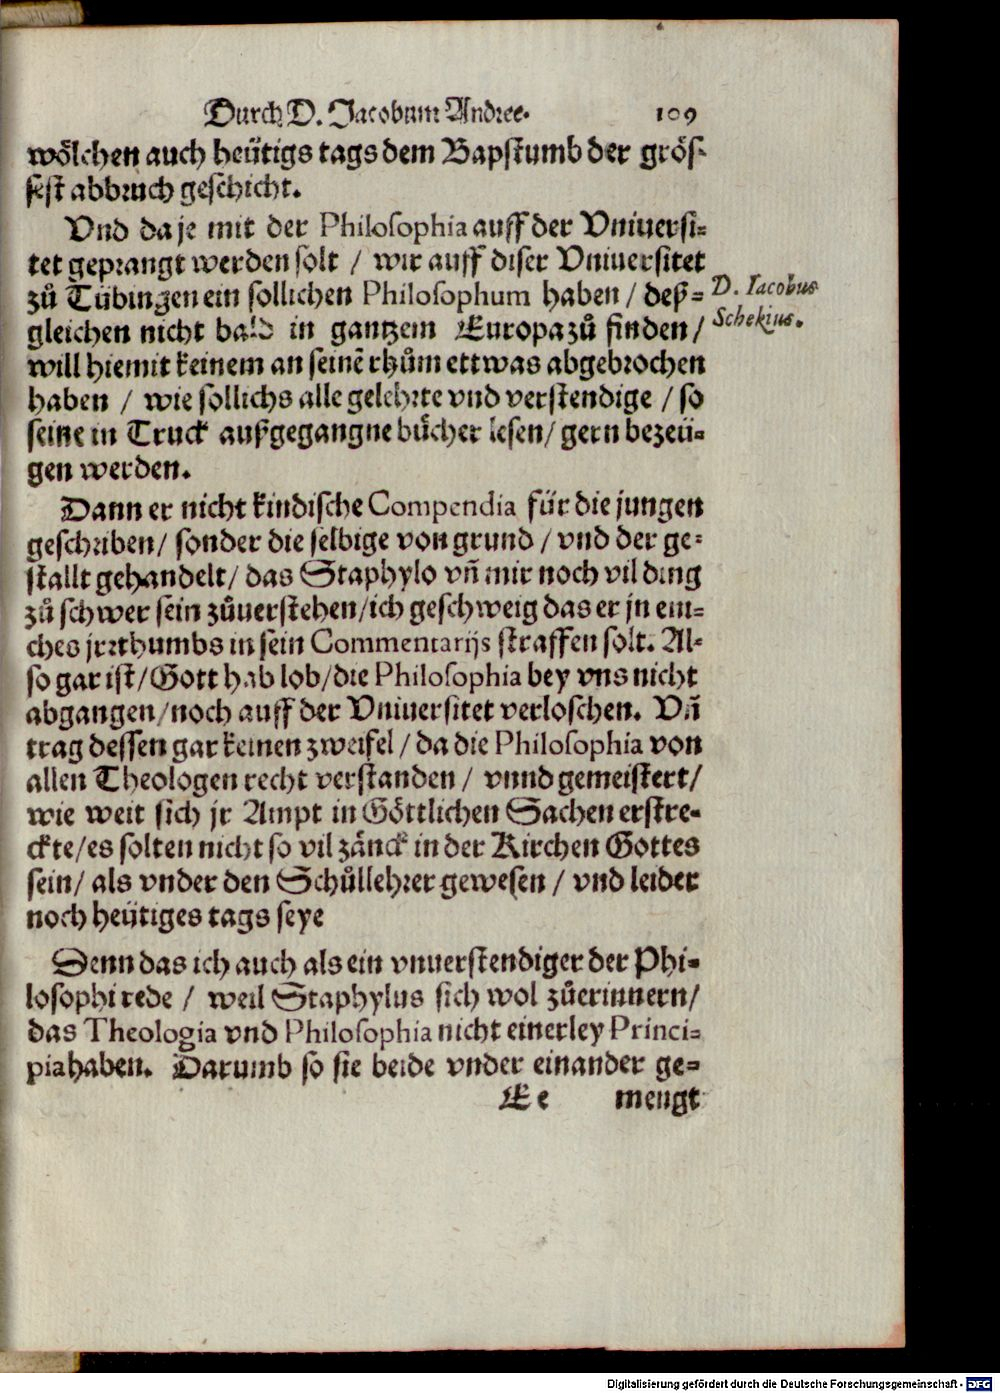 Durch D. Jacobum Andree. 109
wölchen auch heütigs tags dem Bapstumb der grös-
sest abbruch geschicht.
Vnd da je mit der Philosophia auff der Vniuersi-
tet geprangt werden solt / wir auff diser Vniuersitet
zů Tübingen ein sollichen Philosophum haben / deß-
gleichen nicht bald in gantzem Europa zů finden /
will hiemit keinem an seinē rhům ettwas abgebrochen
haben / wie sollichs alle gelehrte vnd verstendige / so
seine in Truck außgegangne bücher lesen / gern bezeü-
gen werden.
D. Iacobus
Schekius.
Dann er nicht kindische Compendia für die jungen
geschriben / sonder die selbige von grund / vnd der ge-
stallt gehandelt / das Staphylo vñ mir noch vil ding
zů schwer sein zůuerstehen / ich geschweig das er jn ein-
ches jrrthumbs in sein Commentarijs straffen solt. Al-
so gar ist / Gott hab lob / die Philosophia bey vns nicht
abgangen / noch auff der Vniuersitet verloschen. Vñ
trag dessen gar keinen zweifel / da die Philosophia von
allen Theologen recht verstanden / vnnd gemeistert /
wie weit sich jr Ampt in Göttlichen Sachen erstre-
ckte / es solten nicht so vil zänck in der Kirchen Gottes
sein / als vnder den Schůllehrer gewesen / vnd leider
noch heütiges tags seye
Denn das ich auch als ein vnuerstendiger der Phi-
losophi rede / weil Staphylus sich wol zůerinnern /
das Theologia vnd Philosophia nicht einerley Princi-
pia haben. Darumb so sie beide vnder einander ge-
Ee mengt
Digitalisierung gefördert durch die Deutsche Forschungsgemeinschaft - DFG